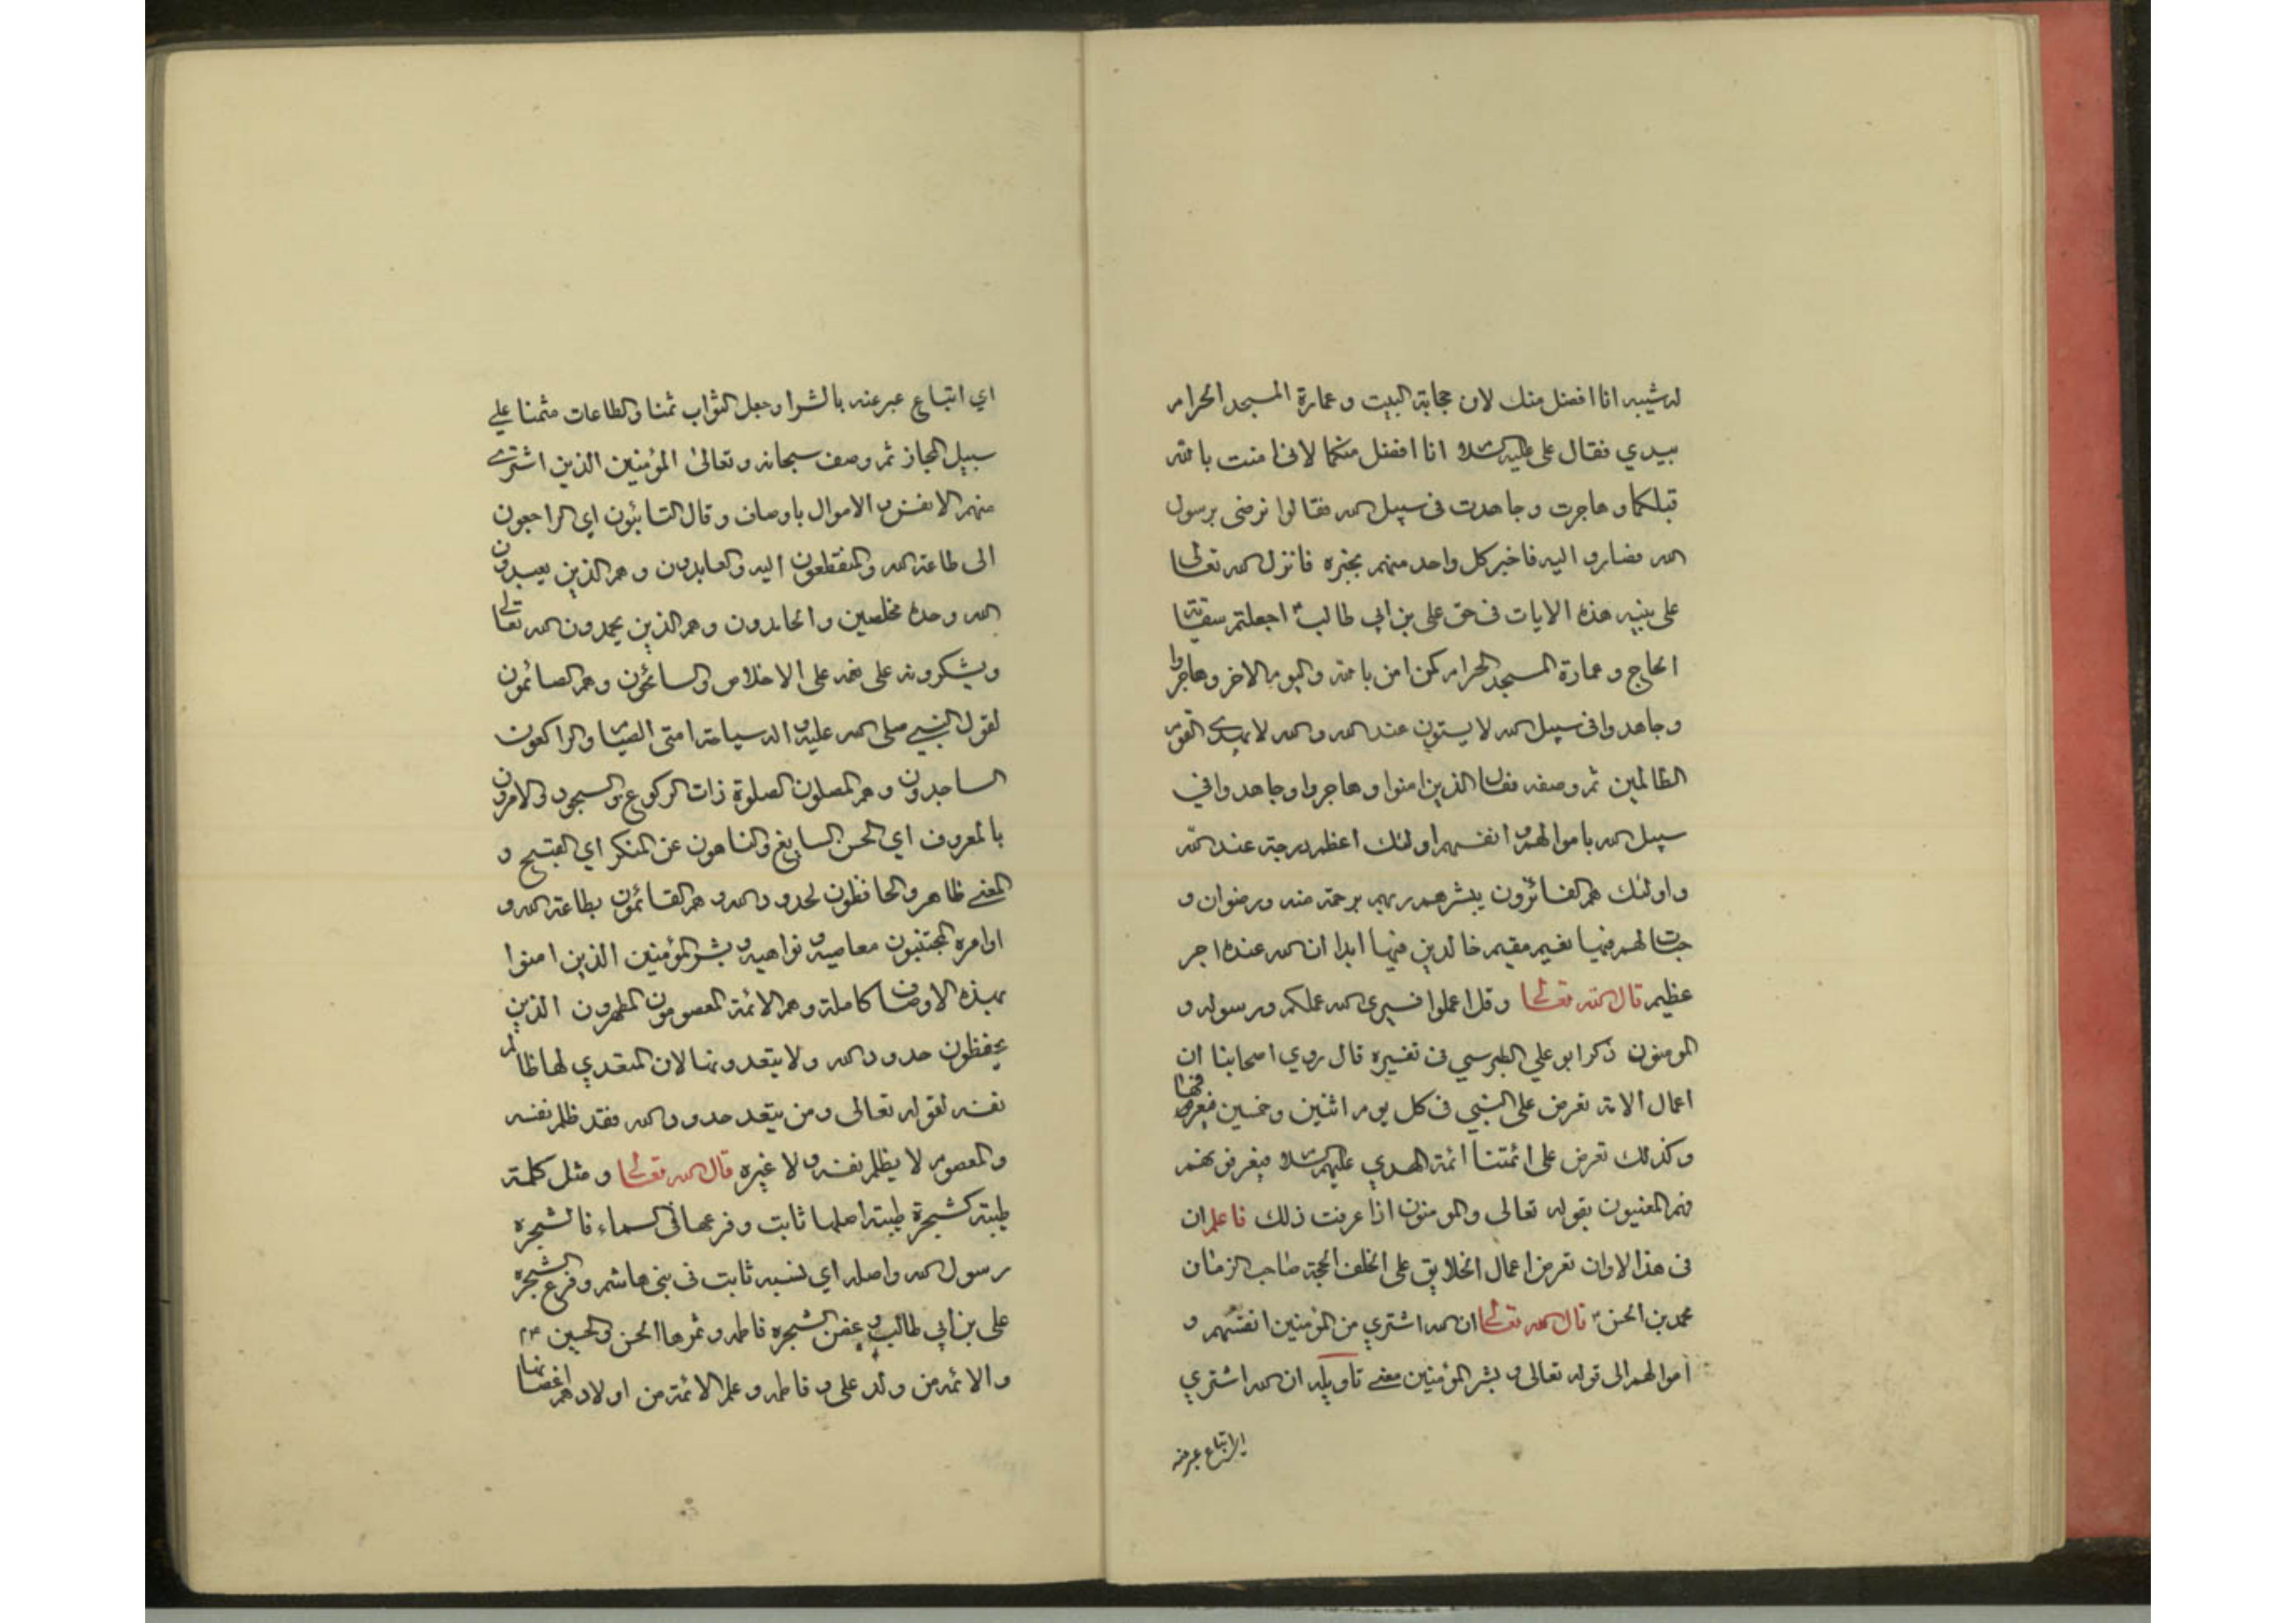 له شيبه انا افضل منك لان حجابة البيت و عمارة المسجد الحرام
بيدي فقال علي عليه السلام انا افضل منكما لاني امنت بالله
قبلكما و هاجرت و جاهدت في سبيل الله فقالوا نرضى برسول
الله فصاروا اليه فاخبر كل واحد منهم بخبره فانزل الله تعالى
على نبيه هذه الايات في حق علي بن ابي طالب اجعلتم سقاية
الحاج و عمارة المسجد الحرام كمن امن بالله واليوم الاخر وهاجروا
وجاهدوا في سبيل الله لا يستون عند الله والله لا يهدي القوم
الظالمين ثم وصفه فقال الذين امنوا و هاجروا وجاهدوا في
سبيل الله باموالهم و انفسهم اولئك اعظم درجة عند الله
واولئك هم الفائزون يبشرهم ربهم برحمة منه ورضوان و
جنات لهم فيها نعيم مقيم خالدين فيها ابدا ان الله عنده اجر
عظيم قال الله تعالى وقل اعملوا فسيرى الله عملكم ورسوله و
المومنون ذكر ابو علي الطبرسي في تفسيره قال روي اصحابنا ان
اعمال الامة تعرض على النبي في كل يوم اثنين وخميس فيعرفها
وكذلك تعرض على ائمتنا ائمة الهدي عليهم السلام فيعرفونهم
فهم المعنيون بقوله تعالى والمومنون اذا عرفت ذلك فاعلم ان
في هذا الاوان تعرض اعمال الخلايق على الخلف الحجة صاحب الزمان
محمد بن الحسن قال الله تعالى ان الله اشتري من المؤمنين انفسهم و
اموالهم الى قوله تعالى و بشر المؤمنين معني تاويله ان الله اشتري
اي ابتاع عبر عنه
اي ابتاع عبر عنه بالشرا وجعل الثواب ثمنا والطاعات مثمنا علي
سبيل المجاز ثم وصف سبحانه و تعالى المؤمنين الذين اشترى
منهم الانفس و الاموال باوصاف و قال التائبون اي الراجعون
الى طاعة الله والمنقطعون اليه والعابدون و هم الذين يعبدون
الله وحده مخلصين والحامدون وهم الذين يحمدون الله تعالى
ويشكرونه على نعمه على الاخلاص والسائحون وهم الصائمون
لقول النبي صلى الله عليه و اله سياحة امتى الصيام والراكعون
الساجدون و هم المصلون الصلوة ذات الركوع والسجود والامرون
بالمعروف اي الحسن السايغ والناهون عن المنكر اي القبيح و
المعني ظاهر والحافظون لحدود الله و هم القائمون بطاعة الله و
اوامره المجتنبون معاصيه و نواهيه و بشر المؤمنين الذين امنوا
بهذه الاوصاف كاملة وهم الائمة المعصومون المطهرون الذين
يحفظون حدود الله ولا يتعدونها لان المتعدي لها ظالم
نفسه لقوله تعالى ومن يتعد حدود الله فقد ظلم نفسه
والمعصوم لا يظلم نفسه ولا غيره قال الله تعالى و مثل كلمة
طيبة كشجرة طيبة اصلها ثابت و فرعها في السماء فالشجرة
رسول الله واصله اي نسبه ثابت في بني هاشم وفرع الشجرة
علي بن ابي طالب و غصن الشجرة فاطمه وثمرها الحسن والحسين
والائمه من ولد علي و فاطمه و علم الائمة من اولادهم اغصانها